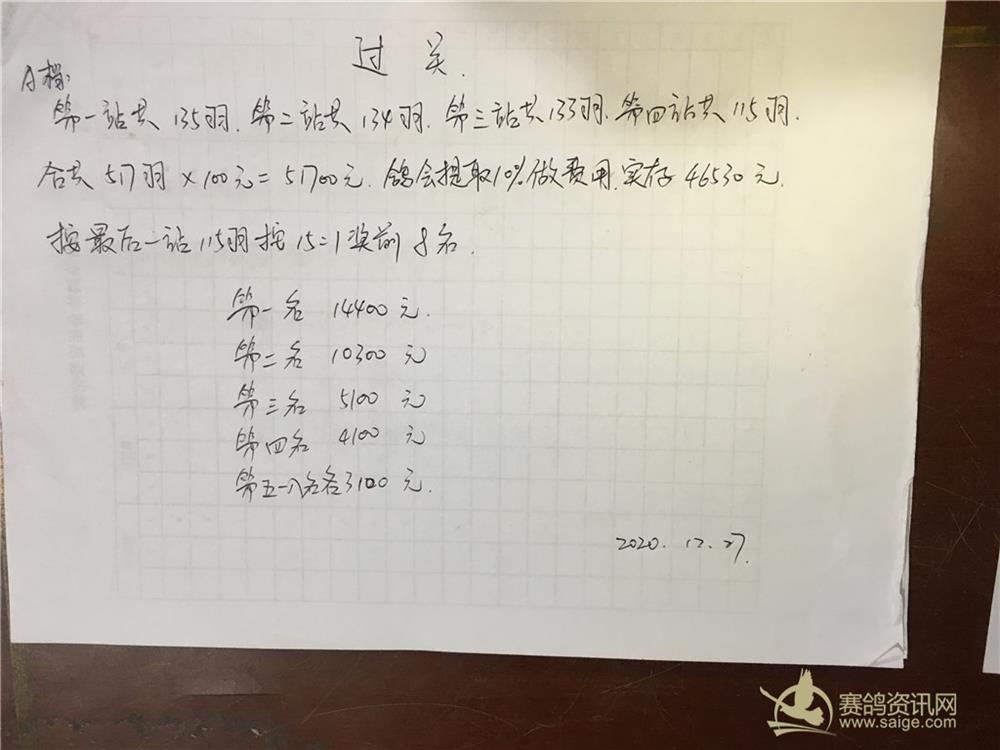 过关.
A档:
第一站共135羽.第二站共134羽.第三站共133羽.第四站共115羽.
合共517羽×100元=51700元.鸽会提取10%做费用.实存46530元.
按最后一站115羽按15=1奖前8名.
第一名 14400元.
第二名 10300元
第三名 5100元
第四名 4100元
第五一八名各3100元.
2020.12.27.
赛鸽资讯网
www.saige.com